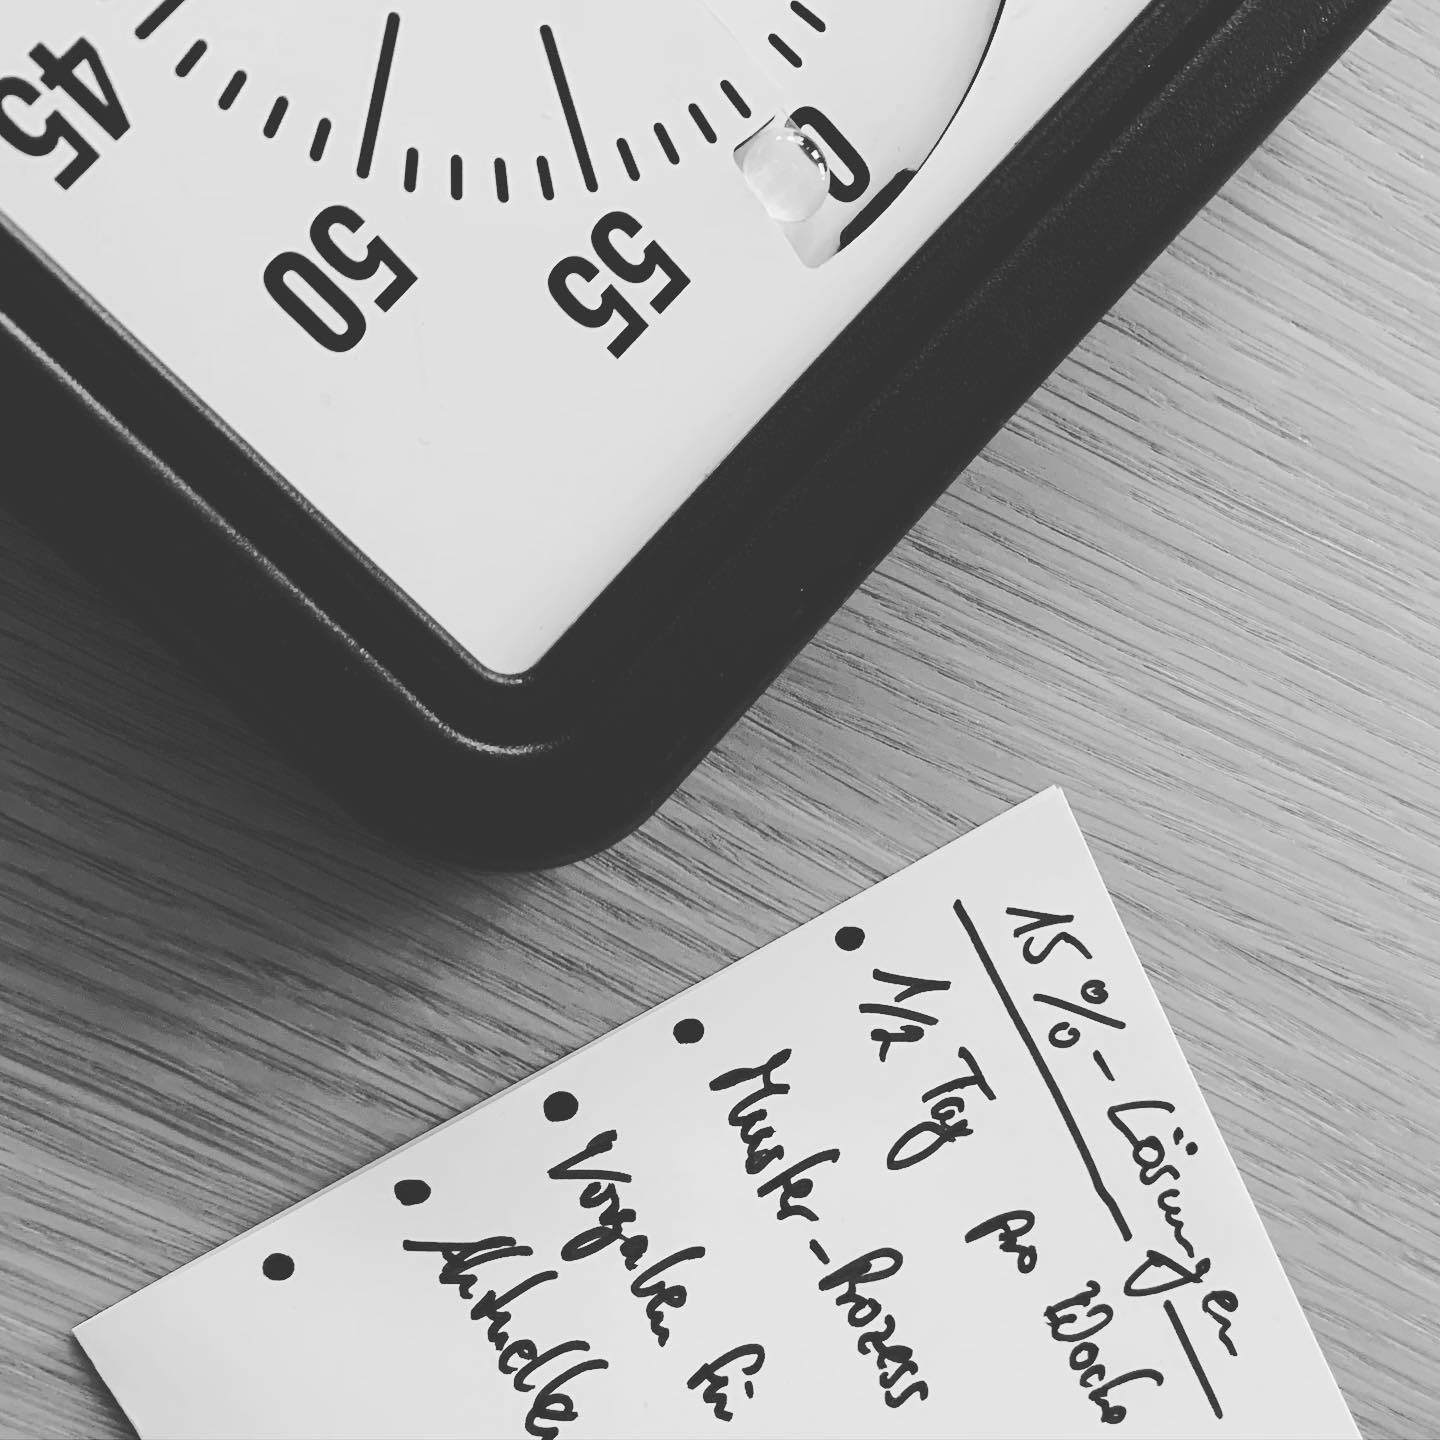 45
50
55
0
15%-Lösungen
• 1/2 Tag pro Woche
• Muster-Prozess
• Vorgaben für
• Aktueller
•